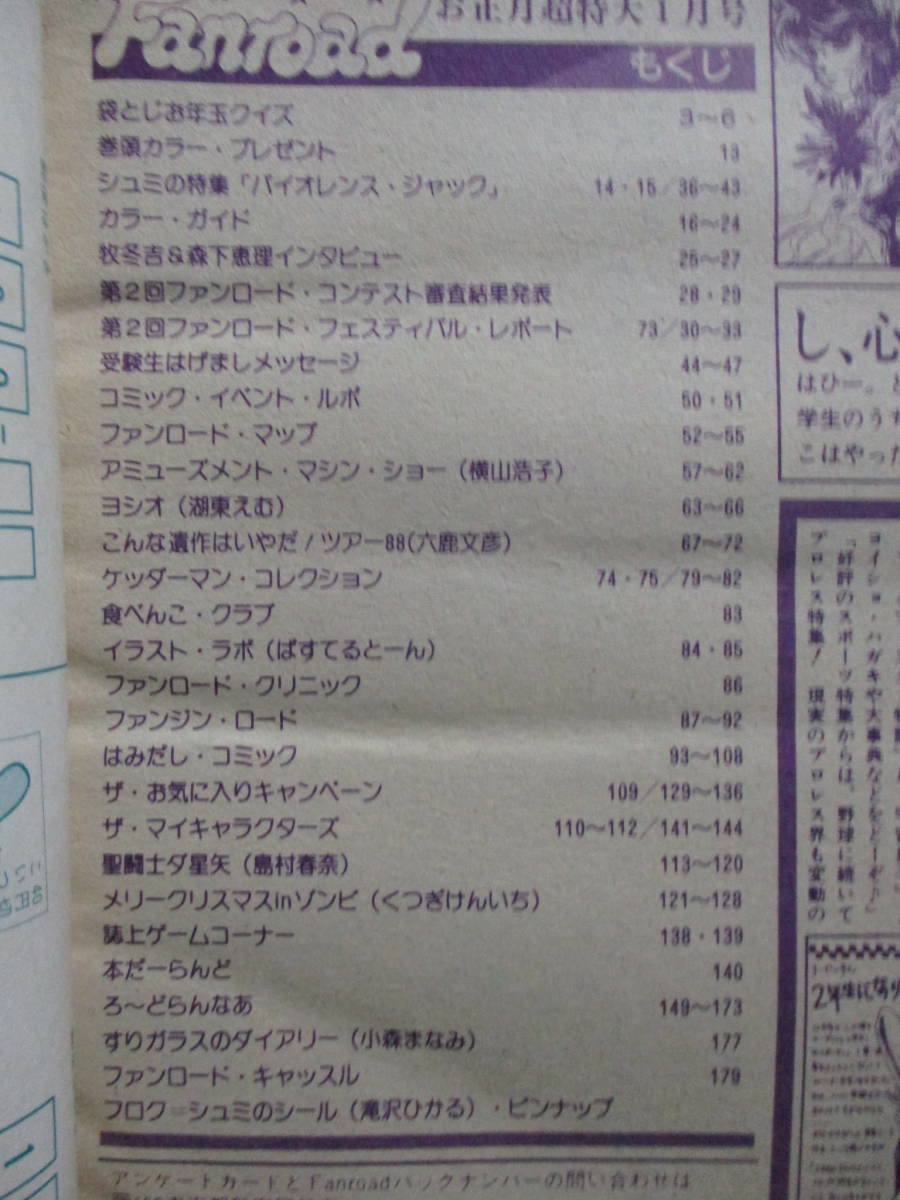 Fanroad
お正月超特大1月号
もくじ
袋とじお年玉クイズ 3〜6
巻頭カラー・プレゼント 13
シュミの特集「バイオレンス・ジャック」 14・15/36〜43
カラー・ガイド 16〜24
牧冬吉&森下恵理インタビュー 25〜27
第2回ファンロード・コンテスト審査結果発表 28・29
第2回ファンロード・フェスティバル・レポート 73/30〜33
受験生はげましメッセージ 44〜47
コミック・イベント・ルポ 50・51
ファンロード・マップ 52〜55
アミューズメント・マシン・ショー(横山浩子) 57〜62
ヨシオ(湖東えむ) 63〜66
こんな遺作はいやだ!ツアー88(六鹿文彦) 67〜72
ケッダーマン・コレクション 74・75/79〜82
食べんこ・クラブ 83
イラスト・ラボ(ぱすてるとーん) 84・85
ファンロード・クリニック 86
ファンジン・ロード 87〜92
はみだし・コミック 93〜108
ザ・お気に入りキャンペーン 109/129〜136
ザ・マイキャラクターズ 110〜112/141〜144
聖闘士ダ星矢(島村春奈) 113〜120
メリークリスマスinゾンビ(くつぎけんいち) 121〜128
誌上ゲームコーナー 138・139
本だーらんど 140
ろ〜どらんなあ 149〜173
すりガラスのダイアリー(小森まなみ) 177
ファンロード・キャッスル 179
フロク=シュミのシール(滝沢ひかる)・ピンナップ
アンケートカードとFanroadバックナンバーの問い合わせは
し、心
はひー。と
学生のうす
こはやった
ヨイショ・ハガキや大事典などをどーぞ♪」
「好評のスポーツ特集からは、野球に続いて
プロレス特集! 現実のプロレス界も変動の
2年生になり